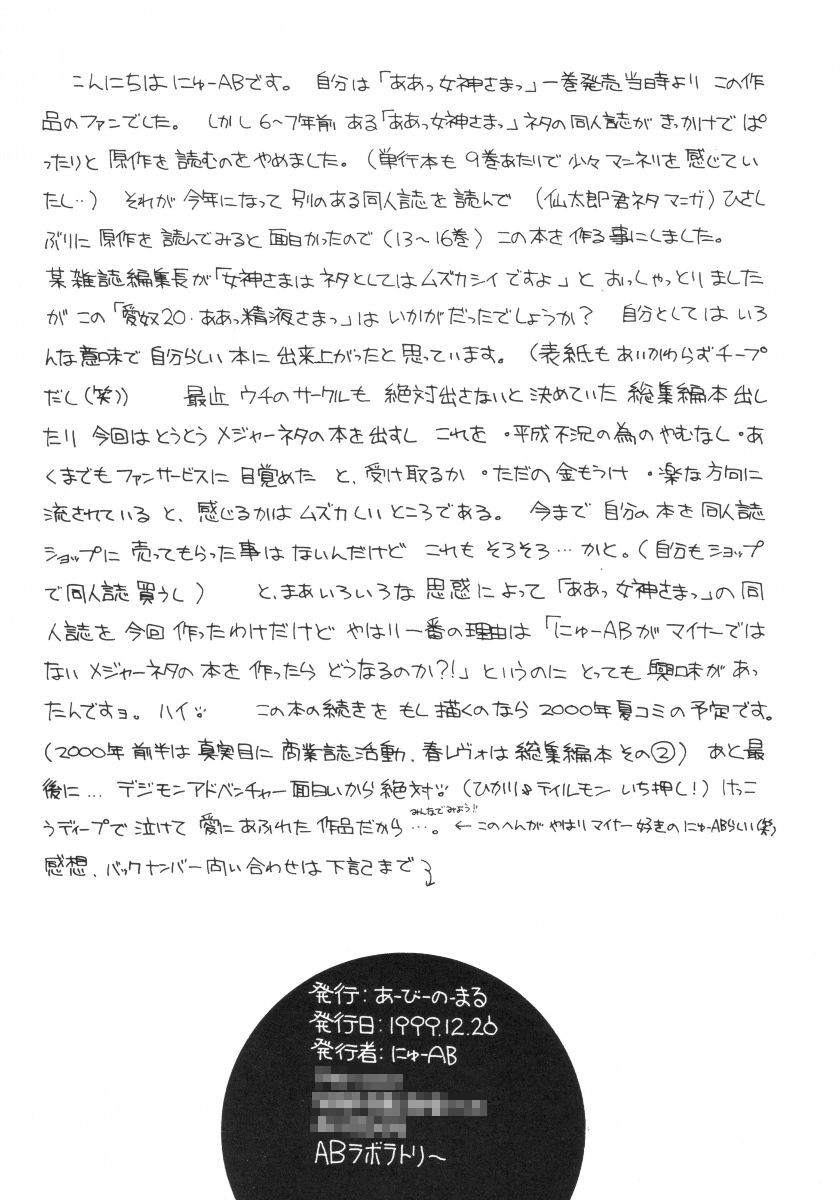 こんにちは にゅーABです。 自分は「ああっ女神さまっ」一巻発売当時より この作
品のファンでした。 しかし 6〜7年前 ある「ああっ女神さまっ」ネタの同人誌が きっかけで ぱ
ったりと 原作を 読むのを やめました。(単行本も 9巻あたりで 少々 マンネリを 感じてい
たし‥) それが 今年になって 別のある 同人誌を 読んで (仙太郎君ネタ マンガ)ひさし
ぶりに 原作を 読んでみると 面白かったので (13〜16巻) この本を 作る 事にしました。
某雑誌編集長が「女神さまは ネタとしては ムズカシイですよ」と おっしゃっとりました
が この「愛奴20・ああっ精液さまっ」は いかがだったでしょうか? 自分としては いろ
んな意味で 自分らしい 本に 出来上がったと 思っています。(表紙も あいかわらずチープ
だし(笑)) 最近 ウチのサークルも 絶対出さないと 決めていた 総集編本 出し
たり 今回はとうとう メジャーネタの本を出すし これを ・平成不況の為のやむなし ・あ
くまでも ファンサービスに 目覚めた と、受け取るか ・ただの 金もうけ ・楽な方向に
流されている と、感じるかは ムズカしい ところである。 今まで 自分の 本を 同人誌
ショップに 売ってもらった 事は ないんだけど これも そろそろ… かと。(自分も ショップ
で 同人誌 買うし) と、まあ いろいろな 思惑 によって 「ああっ女神さまっ」の 同
人誌を 今回 作ったわけだけど やはり 一番の 理由は 「にゅーABが マイナーでは
ない メジャーネタの 本を 作ったら どうなるのか?!」 というのに とっても 興味が あっ
たんですョ。ハイ。 この本の続きを もし描くのなら 2000年夏コミの予定です。
(2000年 前半は 真実目に 商業誌活動、春レヴォは 総集編本 その②) あと最
後に… デジモンアドベンチャー面白いから絶対!(ひかり&テイルモン いち押し!) けっこ
うディープで 泣けて 愛に あふれた 作品だから…。 みんなでみよう!! ← このへんが やはり マイナー好きの にゅーABらしい(笑)
感想、バックナンバー問い合わせは 下記まで
発行:あーびーの-まる
発行日:1999.12.26
発行者:にゅーAB
ABラボラトリ〜